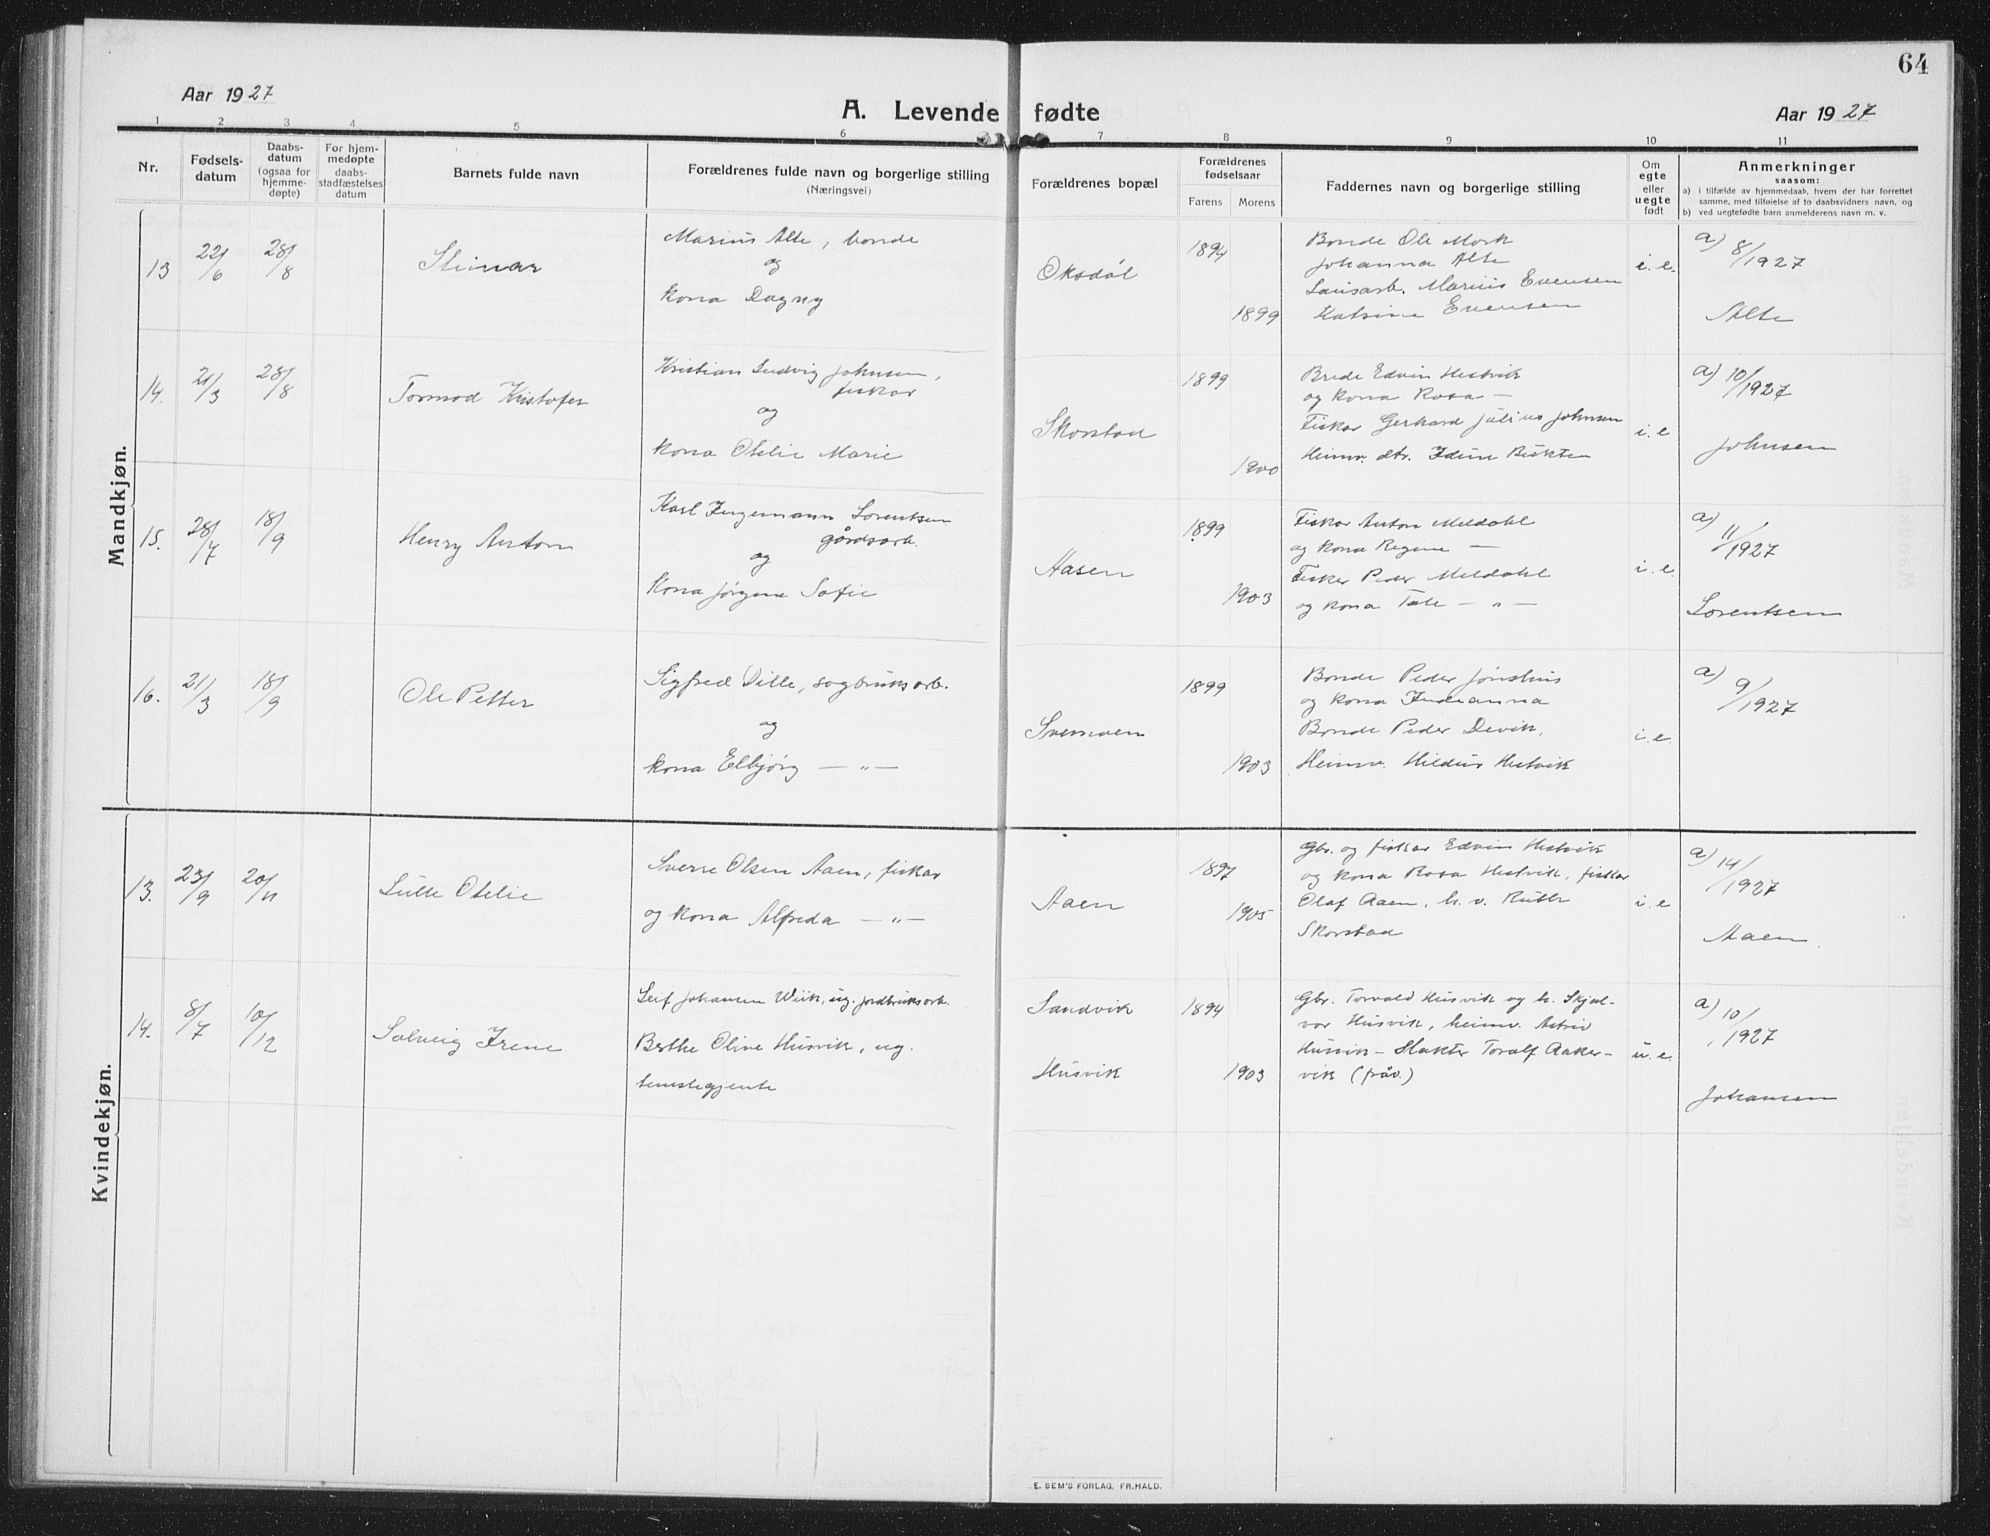 64
Aar 1927
A. Levende fødte
Aar 1927
1 2 3 4 5 6 7 8 9 10 11
Nr.
Fødsels-
datum
Daabs-
datum
(ogsaa for
hjemme-
døpte)
For hjem-
medøpte
daabs-
stadfæstelses
datum
Barnets fulde navn
Forældrenes fulde navn og borgerlige stilling
(Næringsvei)
Forældrenes bopæl
Forældrenes
fødselsaar
Farens Morens
Faddernes navn og borgerlige stilling
Om
egte
eller
uegte
født
Anmerkninger
saasom:
a) i tilfælde av hjemmedaab, hvem der har forrettet
samme, med tilføielse af to daabsvidners navn, og
b) ved uegtefødte barn anmelderens navn m. v.
Mandkjøn.
13 22/6 28/8
Steinar
Marius Alte, bonde
og
kona Dagny
Oksdøl
1894
1899
Bonde Ole Mork
Johanna Alte
Lausarb. Marius Evensen
Katrine Evensen
i. e.
a) 8/1927
Alte
14. 21/3 28/8
Tormod Kristofer
Kristian Ludvig Johnsen,
fiskar
og
kona Otelie Marie
Skorstad
1899
1900
Brede Edvin Hestvik
og kona Rosa —
Fiskar Gerhard Julius Johnsen
Heimv. dtr. Idun Bukten
i. e
a) 10/1927
Johnsen
15. 28/7 18/9
Henry Anton
Karl Ingemann Lorentsen
gårdsarb.
og
Kona Jørgine Sofie
Aasen
1899
1903
Fiskar Anton Meldahl
og kona Regine —
Fisker Peder Meldahl
og kona Tale — „ —
i. e.
a) 11/1927
Lorentsen
16. 21/3 18/9
Ole Petter
Sigfred Dille, sagbruksarb.
og
kona Elbjørg — „ —
Svemoen
1899
1903
Bonde Peder Jønshus
og kona Indianna
Bonde Peder Devik,
Heimv. Hildur Hestvik
i. e.
a) 9/1927
Kvindekjøn.
13. 23/9 20/11
Lulle Otelie
Sverre Olsen Aaen, fiskar
og kona Alfreda — „ —
Aaen
1897
1905
Gbr. og fiskar Edvin Hestvik
og kona Rosa Hestvik, fiskar
Olaf Aaen, h. v. Ruth
Skorstad
i. e
a) 14/1927
Aaen
14. 8/7 10/12
Solveig Irene
Leif Johansen Wiik, ug. jordbruksarb.
Berthe Oline Husvik, ug.
tenestegjente
Sandvik
Husvik
1894
1903
Gbr. Torvald Husvik og h. Skjal-
vor Husvik, heimv. Astrid
Husvik — Slakter Toralf Aaker-
vik (frav.)
u. e.
a) 10/1927
Johansen
E. SEM'S FORLAG, FR.HALD.